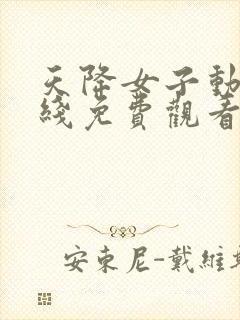 天降女子動
綫免費觀看
安東尼-戴維斯